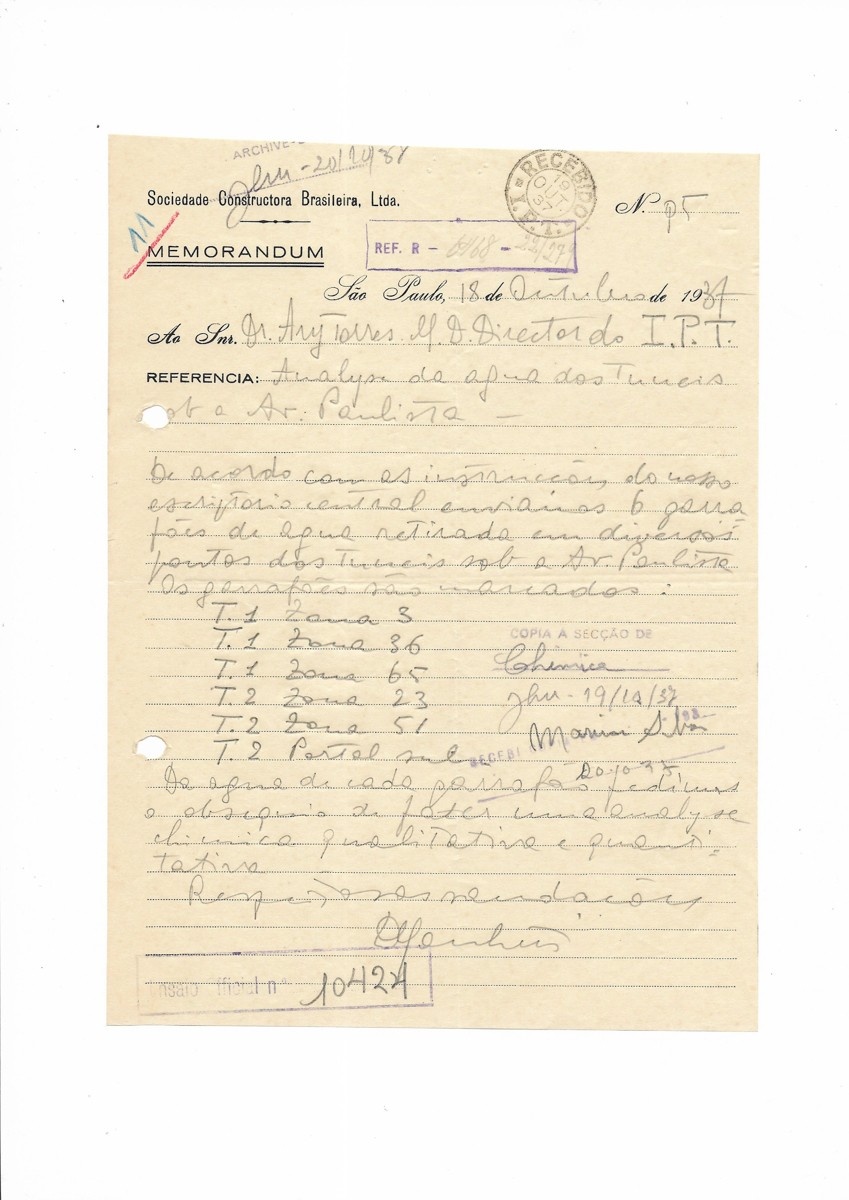 ARCHIVE-
jhm - 20/10/37
RECEBIDO
19
OUT
37
I.P.T.
Sociedade Constructora Brasileira, Ltda.
N. 95
11
MEMORANDUM
REF. R - 6168 - 22/27
São Paulo, 18 de Outubro de 1937
Ao Snr. Dr. Ary Torres M. D. Director do I.P.T.
REFERENCIA: Analyse da agua dos Tuneis
sob a Av. Paulista —
De acordo com as instrucções do nosso
escriptorio central enviamos 6 garra-
fões de agua retirada em diversos
pontos dos tuneis sob a Av. Paulista
Os garrafões são marcados:
T. 1 Zona 3
T. 1 Zona 36
T. 1 Zona 65
T. 2 Zona 23
T. 2 Zona 51
T. 2 Portal sul
COPIA A SECÇÃO DE
Chimica
jhm - 19/10/37
RECEBI
Da agua de cada garrafão pedimos
o obsequio de fazer uma analyse
chimica qualitativa e quanti-
tativa
Respeitosas saudações
Ensaio official nº 10424